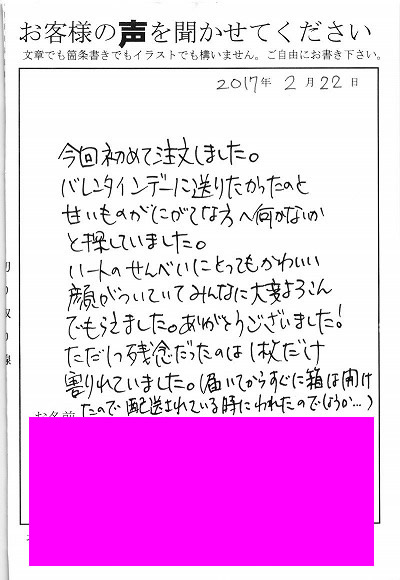 お客様の声を聞かせてください
文章でも箇条書きでもイラストでも構いません。ご自由にお書き下さい。
2017年 2月 22日
今回初めて注文しました。
バレンタインデーに送りたかったのと
甘いものがにがてな方へ何かないか
と探していました。
ハートのせんべいにとってもかわいい
顔がついていてみんなに大変よろこん
でもらえました。ありがとうございました!
ただ1つ残念だったのは1枚だけ
割れていました。(届いてからすぐに箱は開け
たので配送されている時にわれたのでしょうか…)
お名前
切り取り線